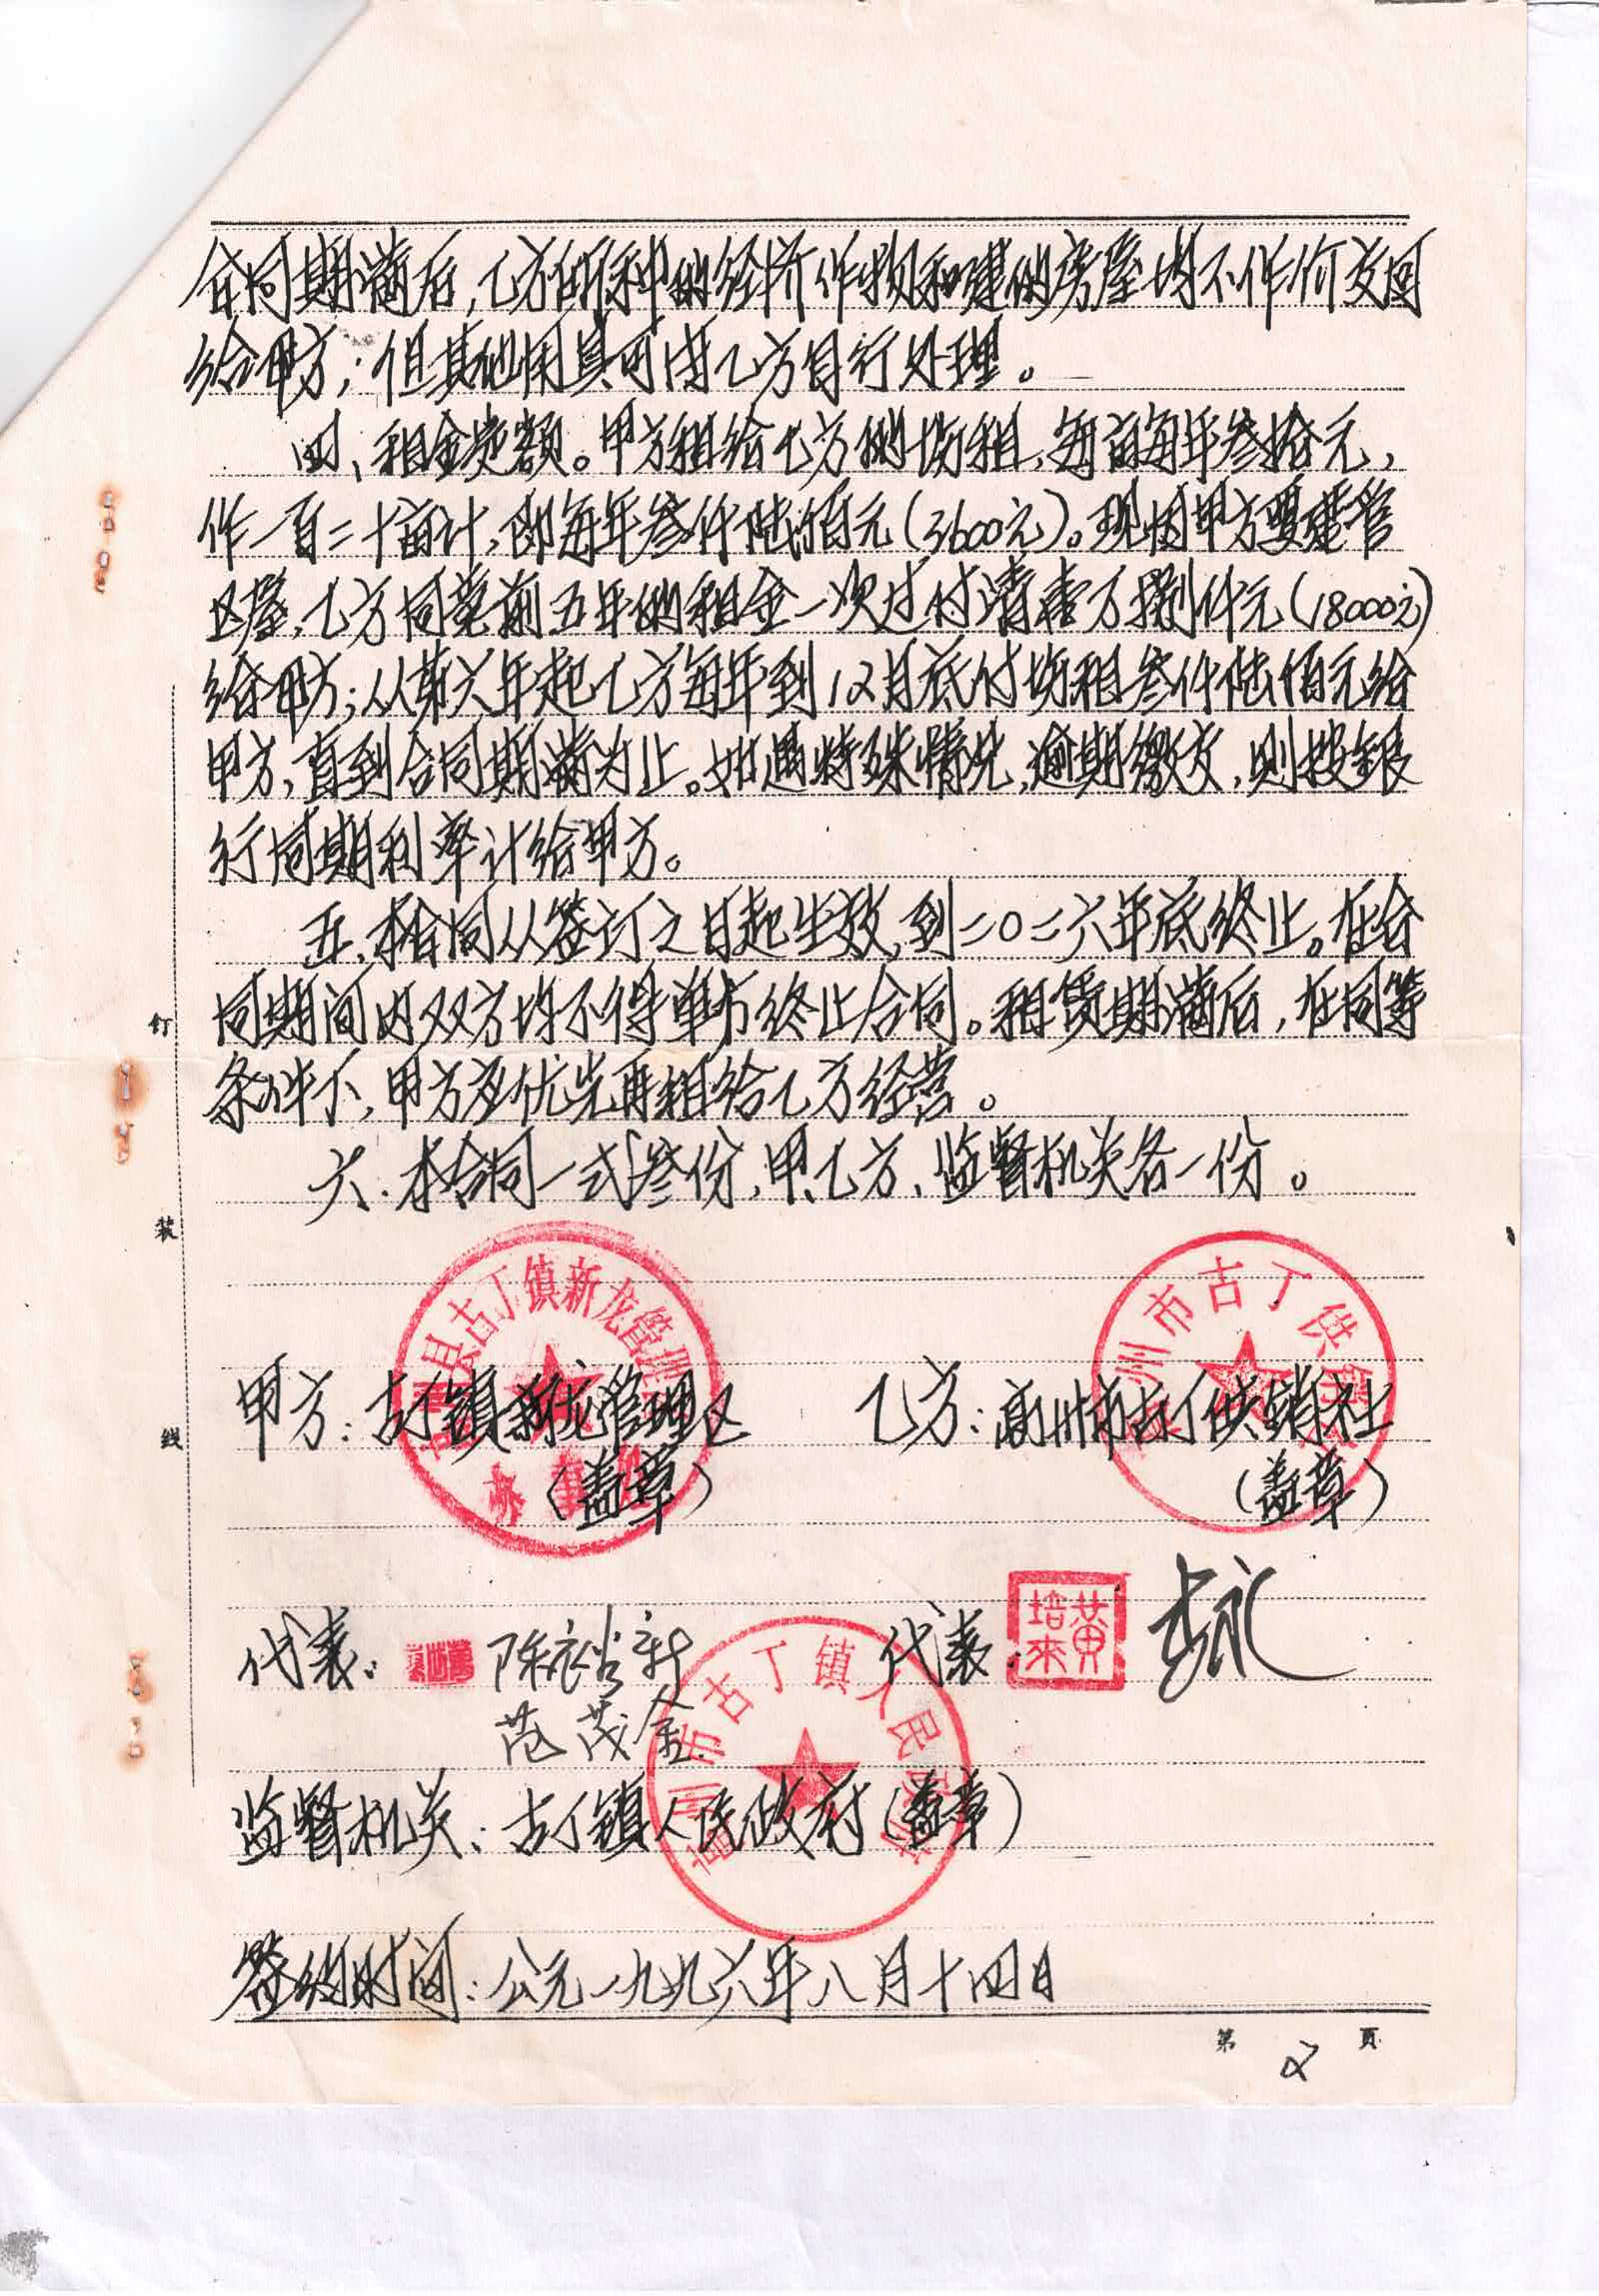 合同期满后，乙方所种的经济作物和建的房屋均不作价交回
给甲方；但其他用具可由乙方自行处理。
四、租金定额。甲方租给乙方的场租，每亩每年叁拾元，
作一百二十亩计，即每年叁仟陆佰元（3600元）。现因甲方要建管
区屋，乙方同意前五年的租金一次过付清壹万捌仟元（18000元）
给甲方；从第六年起乙方每年到12月底付场租叁仟陆佰元给
甲方，直到合同期满为止。如遇特殊情况，逾期缴交，则按银
行同期利率计给甲方。
五、本合同从签订之日起生效，到二〇二六年底终止。在合
同期间内双方均不得单方终止合同。租赁期满后，在同等
条件下，甲方应优先再租给乙方经营。
六、本合同一式叁份，甲、乙方、监督机关各一份。
县古丁镇新龙管理
州市古丁供销
甲方：古丁镇新龙管理区 乙方：高州市古丁供销社
（盖章） （盖章）
代表： 陈裕新 代表 黄培来
范茂金
州市古丁镇人民政府
监督机关：古丁镇人民政府（盖章）
签约时间：公元一九九六年八月十四日
第 2 页
订
装
线